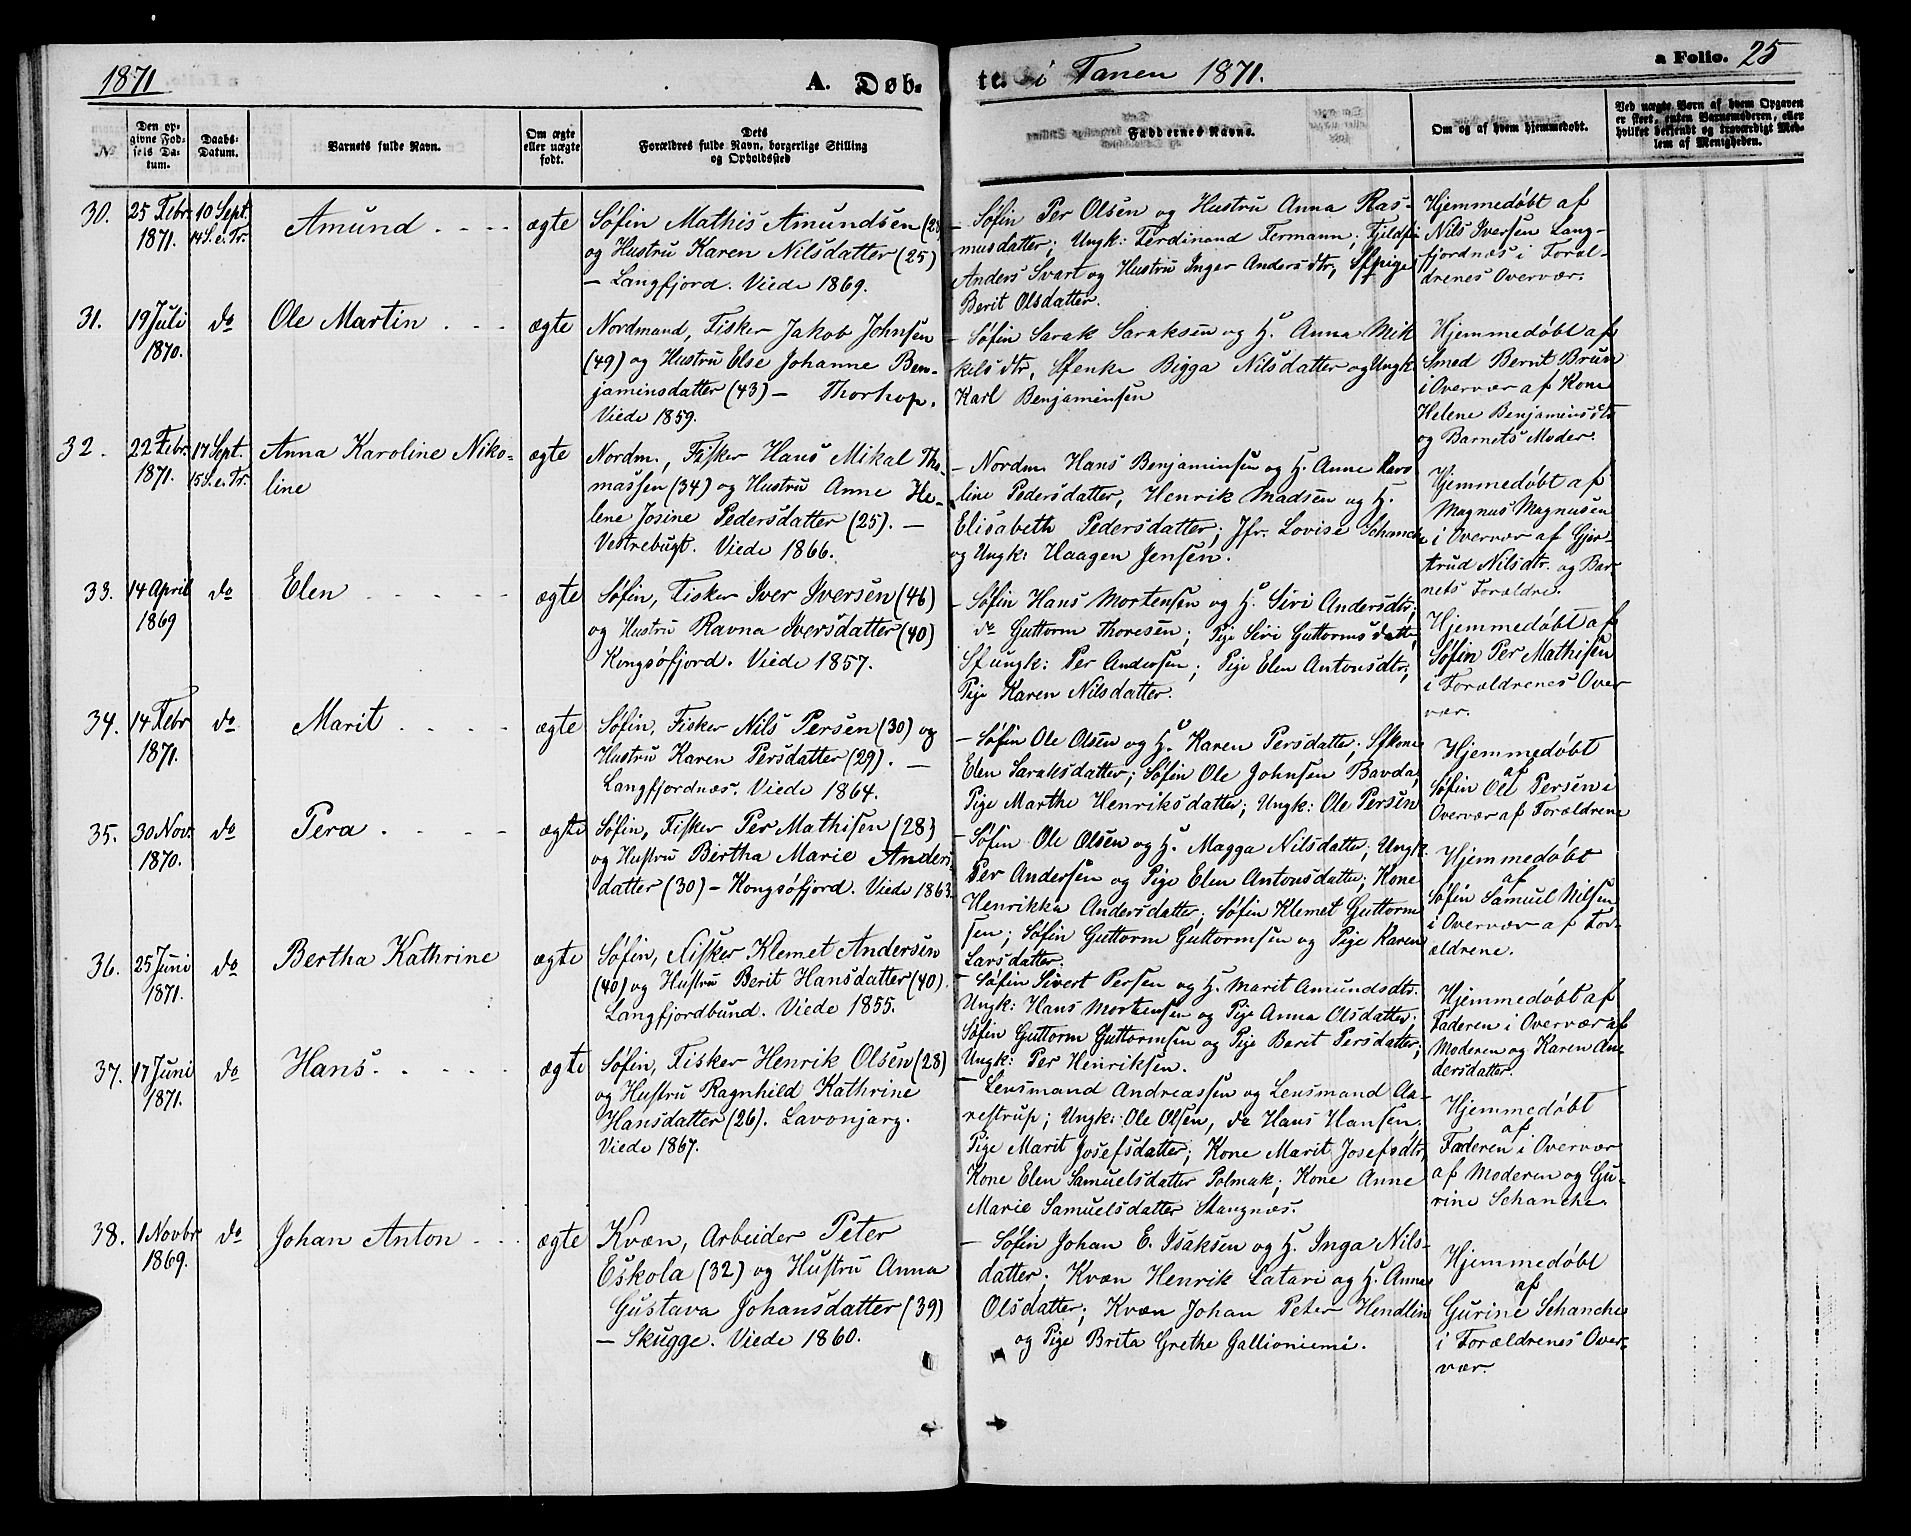 1871
A. Døb-
te. i Tanen 1871.
a Folio. 25
No
Den op-
givne Fød-
sels Da-
tum.
Daabs-
Datum.
Barnets fulde Navn.
Om ægte
eller uægte
født.
Dets
Forældres fulde Navn, borgerlige Stilling
og Opholdssted
Faddernes Navne.
Om og af hvem hjemmedøbt.
Ved uægte Børn af hvem Opgaven
er skeet, enten Barnemoderen, eller
hvilket bekjendt og troværdigt Med-
lem af Menigheden.
30.
25 Febr.
1871.
10 Sept.
14 S. e. Tr.
Amund
ægte
Søfin Mathis Amundsen (28)
og Hustru Karen Nilsdatter (25)
– Langfjord. Viede 1869.
– Søfin Per Olsen og Hustru Anna Ras-
musdatter; Ungk: Ferdinand Fermann; Fjeldfin
Anders Svart og Hustru Inger Andersdtr, Sfpige
Berit Olsdatter.
Hjemmedøbt af
Nils Iversen Lang-
fjordnæs i Foræl-
drenes Overvær.
31.
19 Juli
1870.
do
Ole Martin
ægte
Nordmand, Fisker Jakob Johnsen
(49) og Hustru Else Johanne Ben-
jaminsdatter (43) – Thorhop.
Viede 1859.
– Søfin Sarak Saraksen og H. Anna Mik
kelsdtr, Sfenke Bigga Nilsdatter og Ungk
Karl Benjaminsen
Hjemmedøbt af
Smed Bernt Brun
i Overvær af Kone
Helene Benjaminsdtr
og Barnets Moder.
32.
22 Febr.
1871.
17 Sept.
15 S. e. Tr.
Anna Karoline Niko-
line
ægte
Nordm., Fisker Hans Mikal Tho-
massen (34) og Hustru Anne He-
lene Josine Pedersdatter (25). –
Vestrebugt. Viede 1866.
– Nordm. Hans Benjaminsen og H. Anne Karo
line Pedersdatter, Henrik Madsen og H.
Elisabeth Pedersdatter; Jfr. Lovise Schanche
og Ungk: Haagen Jensen.
Hjemmedøbt af
Magnus Magnusen
i Overvær af Gjer-
trud Nilsdtr. og Bar-
nets Forældre.
33.
14 April
1869
do
Elen
ægte
Søfin, Fisker Iver Iversen (46)
og Hustru Ravna Iversdatter (40)
Kongsøfjord. Viede 1857.
– Søfin Hans Mortensen og H. Siri Andersdtr;
do Guttorm Thoresen; Pige Siri Guttormsdatt,
Sfungk: Per Andersen; Pige Elen Antonsdtr;
Pige Karen Nilsdatter.
Hjemmedøbt af
Søfin Per Mathisen
i Forældrenes Over
vær.
34.
14 Febr
1871.
do
Marit
ægte
Søfin, Fisker Nils Persen (30) og
Hustru Karen Persdatter (29). –
Langfjordnæs. Viede 1864.
– Søfin Ole Olsen og H. Karen Persdatter; Sfkone
Elen Saraksdatter; Søfin Ole Johnsen Bavda,
Pige Marthe Henriksdatter; Ungk: Ole Persen
Hjemmedøbt
af
Søfin Ole Persen i
Overvær af Forældrene
35.
30 Nov.
1870.
do
Pera
ægte
Søfin, Fisker Per Mathisen (28)
og Hustru Bertha Marie Anders
datter (30) – Kongsøfjord. Viede 1863.
– Søfin Ole Olsen og H. Magga Nilsdatte; Ungk.
Per Andersen og Pige Elen Antonsdatter; Kone
Henrikka Andersdatter; Søfin Klemet Guttorm
sen; Søfin Guttorm Guttormsen og Pige Karen
Larsdatter.
Hjemmedøbt
af
Søfin Samuel Nilsen
i Overvær af For-
ældrene.
36.
25 Juni
1871.
do
Bertha Kathrine
ægte
Søfin, Fisker Klemet Andersen
(40) og Hustru Berit Hansdatter (40).
Langfjordbund. Viede 1855.
– Søfin Sivert Persen og H. Marit Amundsdtr.
Ungk: Hans Mortensen og Pige Anna Olsdatter.
Søfin Guttorm Guttormsen og Pige Berit Persdatter;
Ungk: Per Henriksen.
Hjemmedøbt af
Faderen i Overvær af
Moderen og Karen An-
dersdatter.
37.
17 Juni
1871.
do
Hans.
ægte
Søfin, Fisker Henrik Olsen (28)
og Hustru Ragnhild Kathrine
Hansdatter (26). Lavonjarg.
Viede 1867.
– Lensmand Andreassen og Lensmand Aa-
restrup; Ungk: Ole Olsen, do Hans Hansen;
Pige Marit Josefsdatter; Kone Marit Josefsdtr,
Kone Elen Samuelsdatter Polmak; Kone Anne
Marie Samuelsdatter Stangnæs.
Hjemmedøbt
af
Faderen i Overvær
af Moderen og Gu-
rine Schanche.
38.
1 Novbr
1869.
do
Johan Anton
ægte
Kvæn, Arbeider Peter
Eskola (32) og Hustru Anna
Gustava Johansdatter (39)
– Skugge. Viede 1860.
– Søfin Johan E. Isaksen og H. Inga Nils-
datter; Kvæn Henrik Latari og H. Anna
Olsdatter; Kvæn Johan Peter Hendlin
og Pige Brita Grethe Gallioniemi.
Hjemmedøbt
af
Gurine Schanche
i Forældrenes Over-
vær.